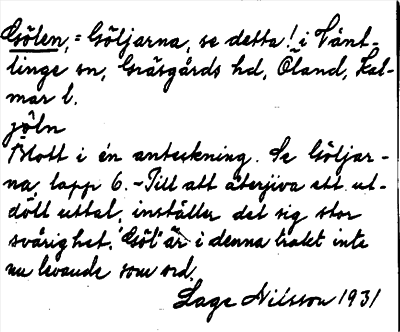 Gölen, = Göljarna, se detta! i Vänt-
linge sn, Gräsgårds hd, Öland, Kal-
mar l.
jöln
Blott i en anteckning. Se Göljar-
na, lapp 6. - Till att återgiva ett ut-
dött uttal, inställer det sig stor
svårighet. "Göl" är i denna trakt inte
nu levande som ord.
Lage Nilsson 1931